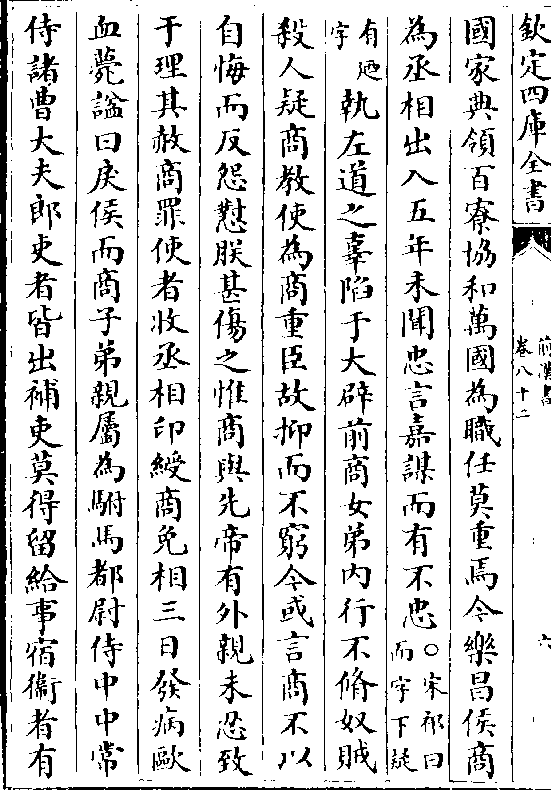 欽定四庫全書
前漢書
卷八十二
六
國家典領百寮協和萬國為職任莫重焉今樂昌侯商
為丞相出入五年未聞忠言嘉謀而有不忠○宋祁曰而字下疑
有迺字執左道之辜陷于大辟前商女弟内行不脩奴賊
殺人疑商教使為商重臣故抑而不窮今或言商不以
自悔而反怨懟朕甚傷之惟商與先帝有外親未忍致
于理其赦商罪使者收丞相印綬商免相三日發病歐
血薨諡曰戾侯而商子弟親屬為駙馬都尉侍中中常
侍諸曹大夫郎吏者皆出補吏莫得留給事宿衛者有